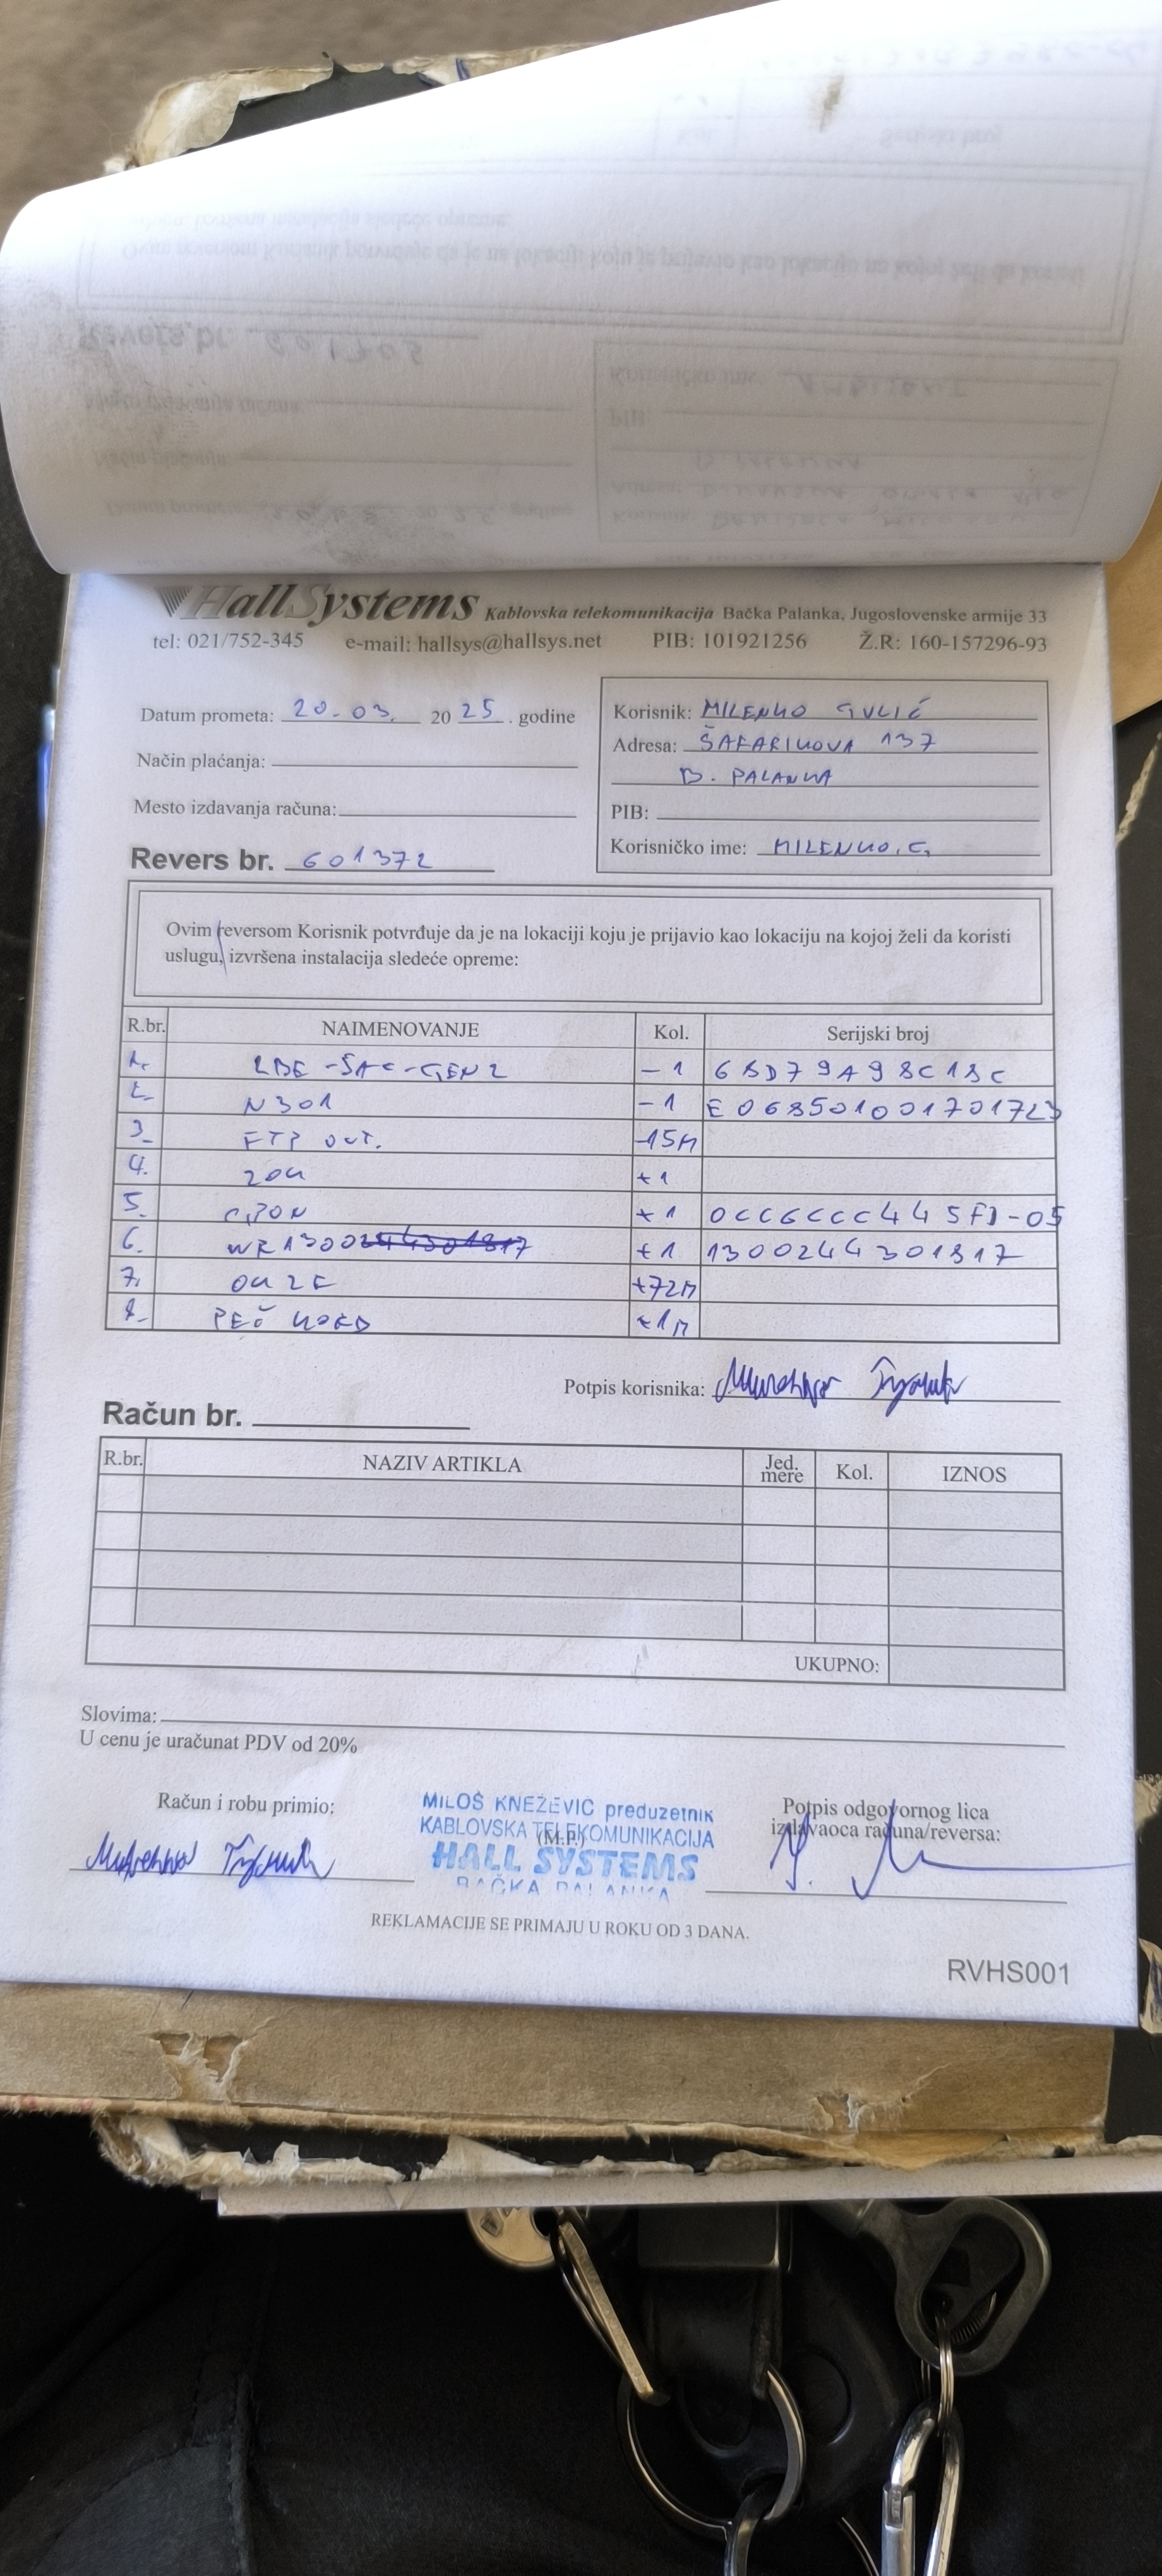 HallSystems Kablovska telekomunikacija Bačka Palanka, Jugoslovenske armije 33
tel: 021/752-345 e-mail: hallsys@hallsys.net PIB: 101921256 Ž.R: 160-157296-93
Datum prometa: 20.03. 2025. godine
Način plaćanja:
Mesto izdavanja računa:
Revers br. 601372
Korisnik: MILENKO GULIĆ
Adresa: ŠAFARIKOVA 137
B. PALANKA
PIB:
Korisničko ime: MILENKO.G
Ovim reversom Korisnik potvrđuje da je na lokaciji koju je prijavio kao lokaciju na kojoj želi da koristi
uslugu, izvršena instalacija sledeće opreme:
R.br. NAIMENOVANJE Kol. Serijski broj
1. LBE-5AC-GEN2 -1 68D79A98C18C
2. N301 -1 E0685010017017
3. FTP OUT. -15M
4. ZOK +1
5. GPON +1
6. WR1300 +1 1300244301817
7. OK 2F +72M
8. PEČ KORD +1
Potpis korisnika:
Račun br.
R.br. NAZIV ARTIKLA Jed. mere Kol. IZNOS
UKUPNO:
Slovima:
U cenu je uračunat PDV od 20%
Račun i robu primio:
MILOŠ KNEŽEVIĆ preduzetnik
KABLOVSKA TELEKOMUNIKACIJA
(M.P.)
HALL SYSTEMS
BAČKA PALANKA
Potpis odgovornog lica
izdavaoca računa/reversa:
REKLAMACIJE SE PRIMAJU U ROKU OD 3 DANA.
RVHS001